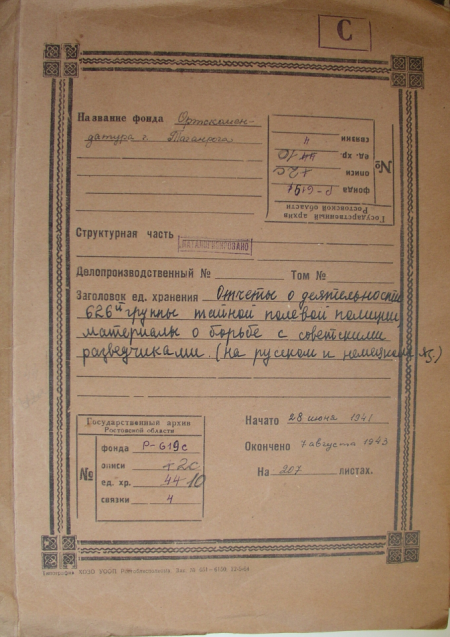 С
Название фонда Ортскомен-
датура г. Таганрога
связки 4
ед. хр. 10
№ описи
фонда Р-619с
Государственный архив
Ростовской области
Структурная часть КАТАЛОГИЗИРОВАНО
Делопроизводственный № Том №
Заголовок ед. хранения Отчеты о деятельности
626й группы тайной полевой полиции,
материалы о борьбе с советскими
разведчиками (на русском и немецком яз)
Государственный архив
Ростовской области
фонда Р-619с
№ описи 2с
ед. хр. 44 10
связки 4
Начато 28 июня 1941
Окончено 7 августа 1943
На 207 листах.